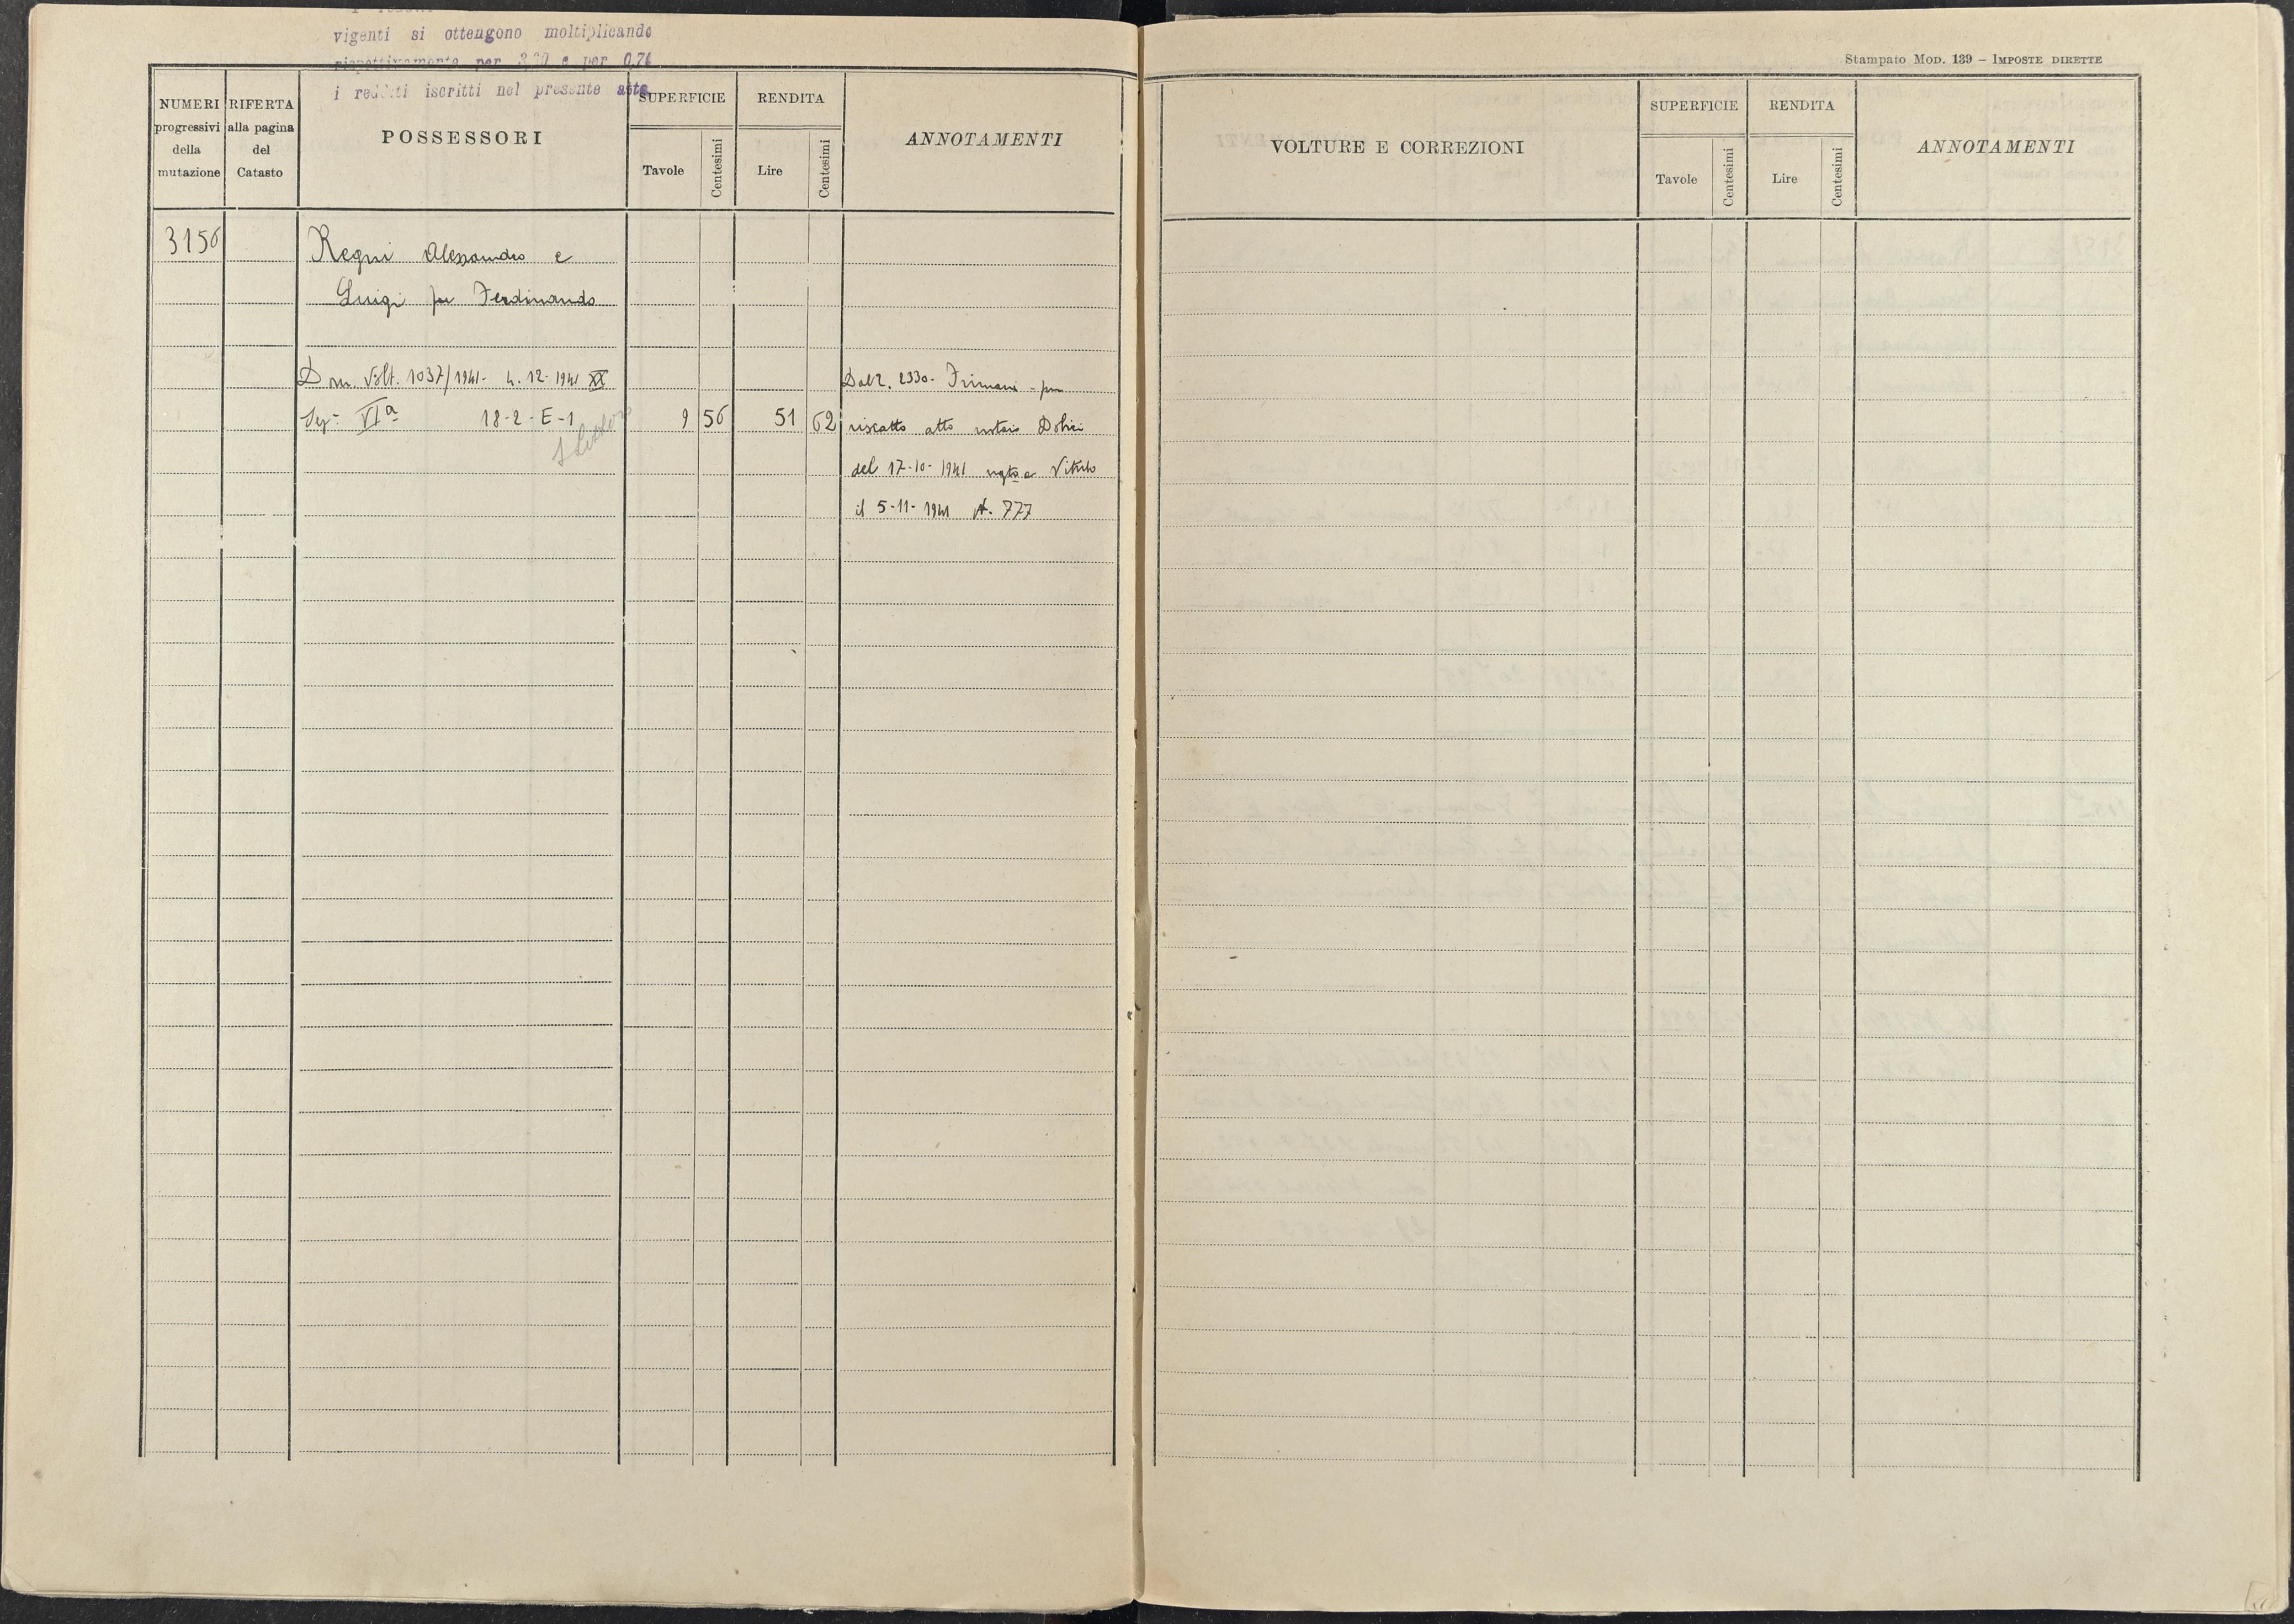 vigenti si ottengono moltiplicando
rispettivamente per 3,20 e per 0,76
i redditi iscritti nel presente atto
Stampato MOD. 139 – IMPOSTE DIRETTE
NUMERI progressivi della mutazione
RIFERTA alla pagina del Catasto
POSSESSORI
SUPERFICIE
Tavole
Centesimi
RENDITA
Lire
Centesimi
ANNOTAMENTI
VOLTURE E CORREZIONI
SUPERFICIE
Tavole
Centesimi
RENDITA
Lire
Centesimi
ANNOTAMENTI
3156
Regni Alessandro e
Luigi fu Ferdinando
D m. Volt. 1037/1941 - 4. 12 - 1941 XX
Dal r. 2330 - - per
Sez: VIa 18-2-E-1 9 56 51 62
riscatto atto notaio
del 17-10-1941 a
il 5-11-1941 N. 777